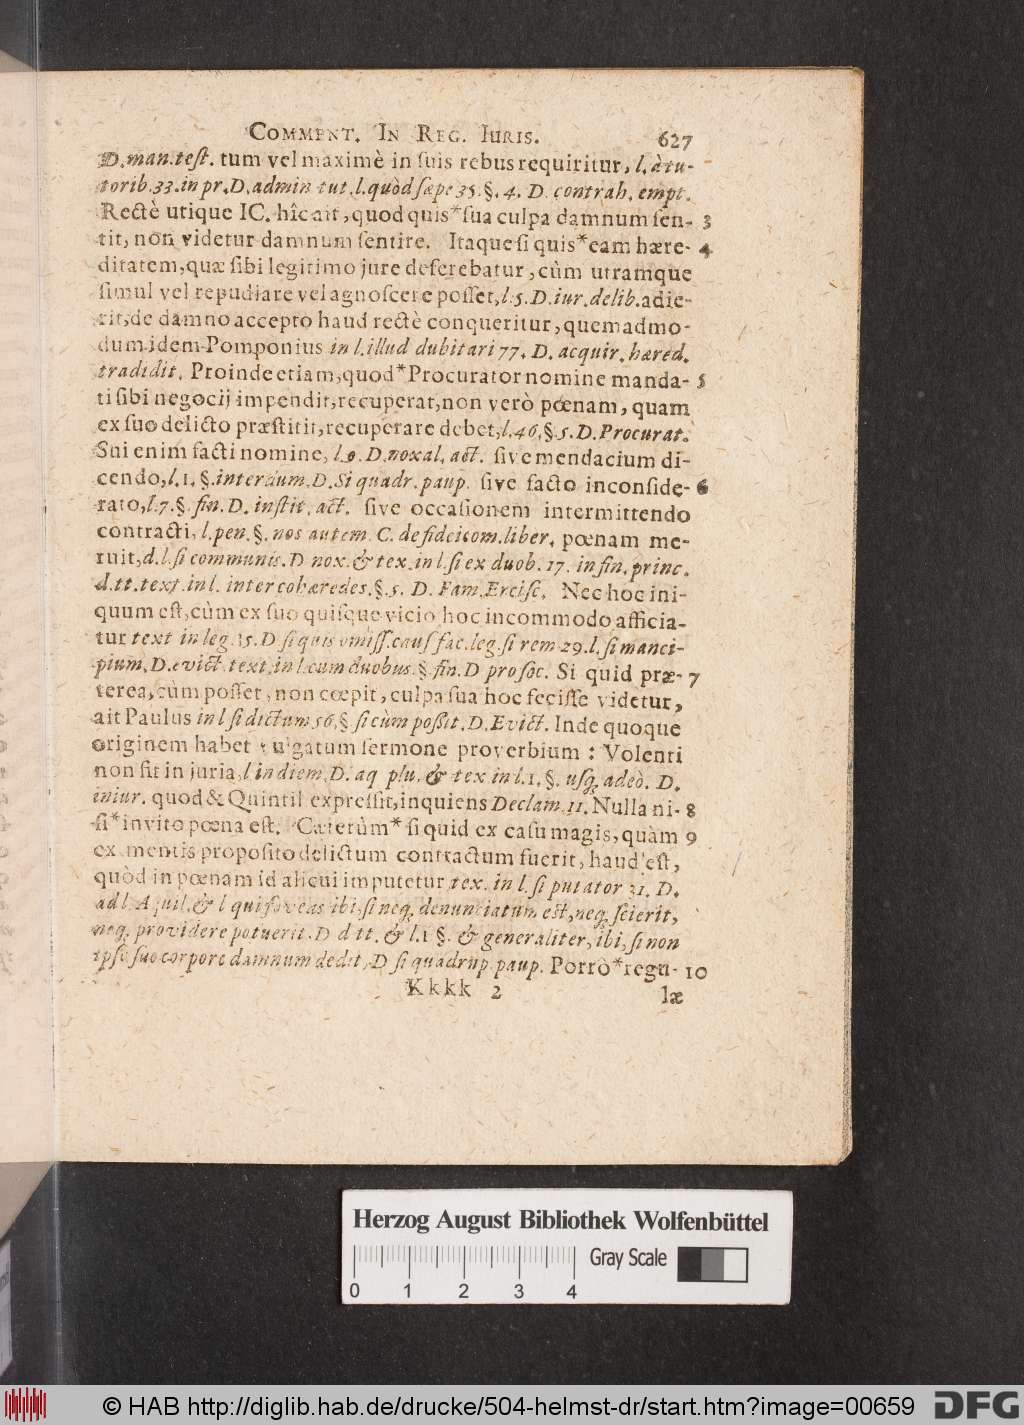 COMMENT. IN REG. IURIS. 627
D. man. test. tum vel maximè in suis rebus requiritur, l. à tu-
torib. 33. in pr. D. admin tut. l. quòd sæpe 35. §. 4. D. contrah. empt.
Rectè utique IC. hîc ait, quod quis* sua culpa damnum sen- 3
tit, non videtur damnum sentire. Itaque si quis* eam hære- 4
ditatem, quæ sibi legitimo jure deferebatur, cùm utramque
simul vel repudiare vel agnoscere posset, l. 5. D. iur. delib. adie-
rit, de damno accepto haud rectè conqueritur, quemadmo-
dum idem Pomponius in l. illud dubitari 77. D. acquir. hæred.
tradidit. Proinde etiam, quod* Procurator nomine manda- 5
ti sibi negocij impendit, recuperat, non verò pœnam, quam
ex suo delicto præstitit, recuperare debet, l. 46. §. 5. D. Procurat.
Sui enim facti nomine, l. 9. D. noxal. act. sive mendacium di-
cendo, l. 1. §. interdum. D. Si quadr. paup. sive facto inconside- 6
rato, l. 7. §. fin. D. instit. act. sive occasionem intermittendo
contracti, l. pen. §. nos autem. C. de fideicom. liber. pœnam me-
ruit, d. l. si communis. D nox. & tex. in l. si ex duob. 17. in fin. princ.
d. tt. text. in l. inter cohæredes. §. 5. D. Fam. Ercisc. Nec hoc ini-
quum est, cùm ex suo quisque vicio hoc incommodo afficia-
tur text in leg. 15. D si quis omiss. caus fac. leg. si rem 29. l. si manci-
pium. D. evict. text. in l. cum duobus. § fin. D pro soc. Si quid præ- 7
terea, cùm posset, non cœpit, culpa sua hoc fecisse videtur,
ait Paulus in l si dictum 56. § si cùm possit. D. Evict. Inde quoque
originem habet vulgatum sermone proverbium : Volenti
non fit in juria, l in diem. D. aq plu. & tex in l. 1. §. usq; adeò. D.
iniur. quod & Quintil expressit, inquiens Declam. 11. Nulla ni- 8
si* invito pœna est. Cæterùm* si quid ex casu magis, quàm 9
ex mentis proposito delictum contractum fuerit, haud est,
quòd in pœnam id alicui imputetur tex. in l. si putator 31. D.
ad l. Aquil. & l qui foveas ibi, si neq; denunciatum est, neq; scierit,
neq; providere potuerit. D d tt. & l. 1 §. & generaliter, ibi, si non
ipso suo corpore damnum dedit, D si quadrup. paup. Porrò* regu- 10
Kkkk 2 læ
Herzog August Bibliothek Wolfenbüttel
Gray Scale
0 1 2 3 4
© HAB http://diglib.hab.de/drucke/504-helmst-dr/start.htm?image=00659
DFG